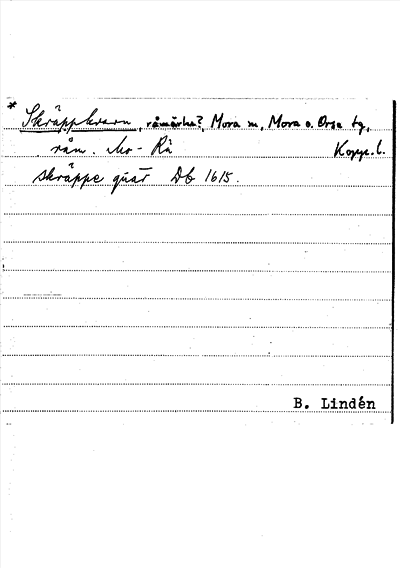 * Skräppkvarn, råmärke?, Mora sn, Mora o. Orsa tg,
råm. Mo - Rå Kopp. l.
skräppe quar Db 1615.
B. Lindén